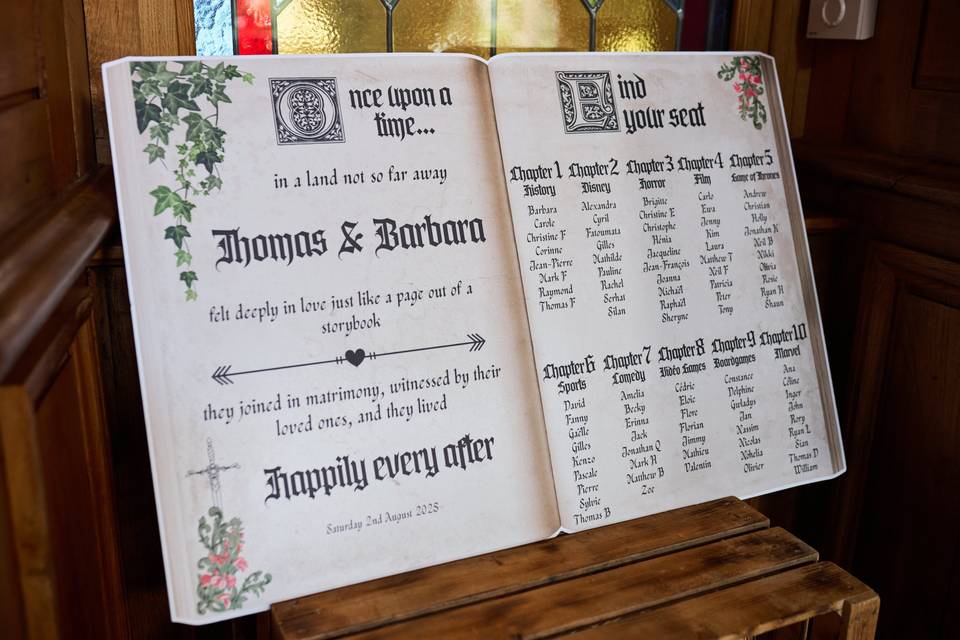 Once upon a
time...
in a land not so far away
Thomas & Barbara
felt deeply in love just like a page out of a
storybook
they joined in matrimony, witnessed by their
loved ones, and they lived
happily every after
Saturday 2nd August 2025
Find
your seat
Chapter 1
History
Barbara
Carole
Christine F
Corinne
Jean-Pierre
Mark F
Raymond
Thomas F
Chapter 2
Disney
Alexandra
Cyril
Fatoumata
Gilles
Mathilde
Pauline
Rachel
Serhat
Silan
Chapter 3
Horror
Brigitte
Christine E
Christophe
Hénia
Jacqueline
Jean-François
Joanna
Michaël
Raphaël
Sheryne
Chapter 4
Film
Carlo
Ewa
Jenny
Kim
Laura
Matthew T
Neil F
Patricia
Peter
Tony
Chapter 5
Game of Thrones
Andrew
Christian
Holly
Jonathan N
Neil B
Nikki
Olivia
Rosie
Ryan H
Shaun
Chapter 6
Sports
David
Fanny
Gaëlle
Gilles
Kenzo
Pascale
Pierre
Sylvie
Thomas B
Chapter 7
Comedy
Amelia
Becky
Erinna
Jack
Jonathan Q
Mark H
Matthew B
Zoe
Chapter 8
Vidéo Games
Cédric
Eloïc
Flore
Florian
Jimmy
Mathieu
Valentin
Chapter 9
Boardgames
Constance
Delphine
Guladys
Jan
Nassim
Nicolas
Nohelia
Olivier
Chapter 10
Marvel
Ana
Céline
Inger
John
Rory
Ryan L
Sian
Thomas D
William